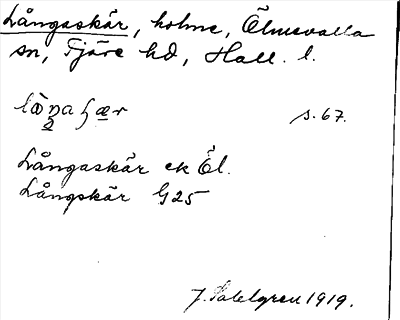 Långaskär, holme, Ölmevalla
sn, Fjäre hd, Hall. l.
s. 67.
Långaskär ek Öl.
Långskär G25
J. Sahlgren 1919.